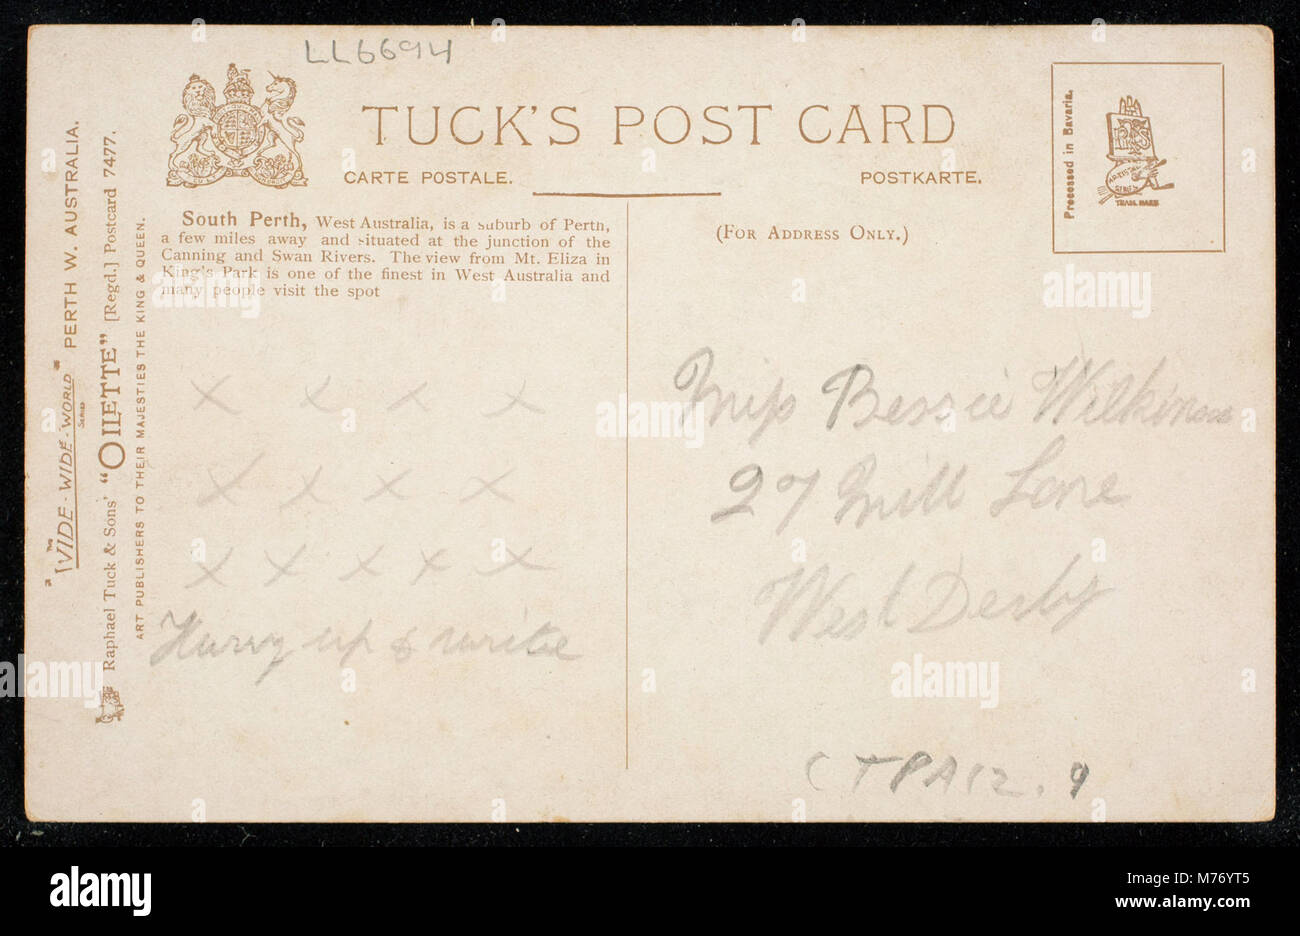 LL6694
TUCK'S POST CARD
CARTE POSTALE.
POSTKARTE.
Processed in Bavaria.
TRADE MARK
(FOR ADDRESS ONLY.)
South Perth, West Australia, is a suburb of Perth,
a few miles away and situated at the junction of the
Canning and Swan Rivers. The view from Mt. Eliza in
King's Park is one of the finest in West Australia and
many people visit the spot
"THE WIDE-WIDE-WORLD" SERIES PERTH W. AUSTRALIA.
Raphael Tuck & Sons' "OILETTE" [Regd.] Postcard 7477.
ART PUBLISHERS TO THEIR MAJESTIES THE KING & QUEEN.
x x x x
x x x x
x x x x x
Hurry up & write
Miss Bessie Wilkinson
27 Mill Lane
West Derby
CTPA12.9
alamy
alamy
Image ID: M76YT5
www.alamy.com